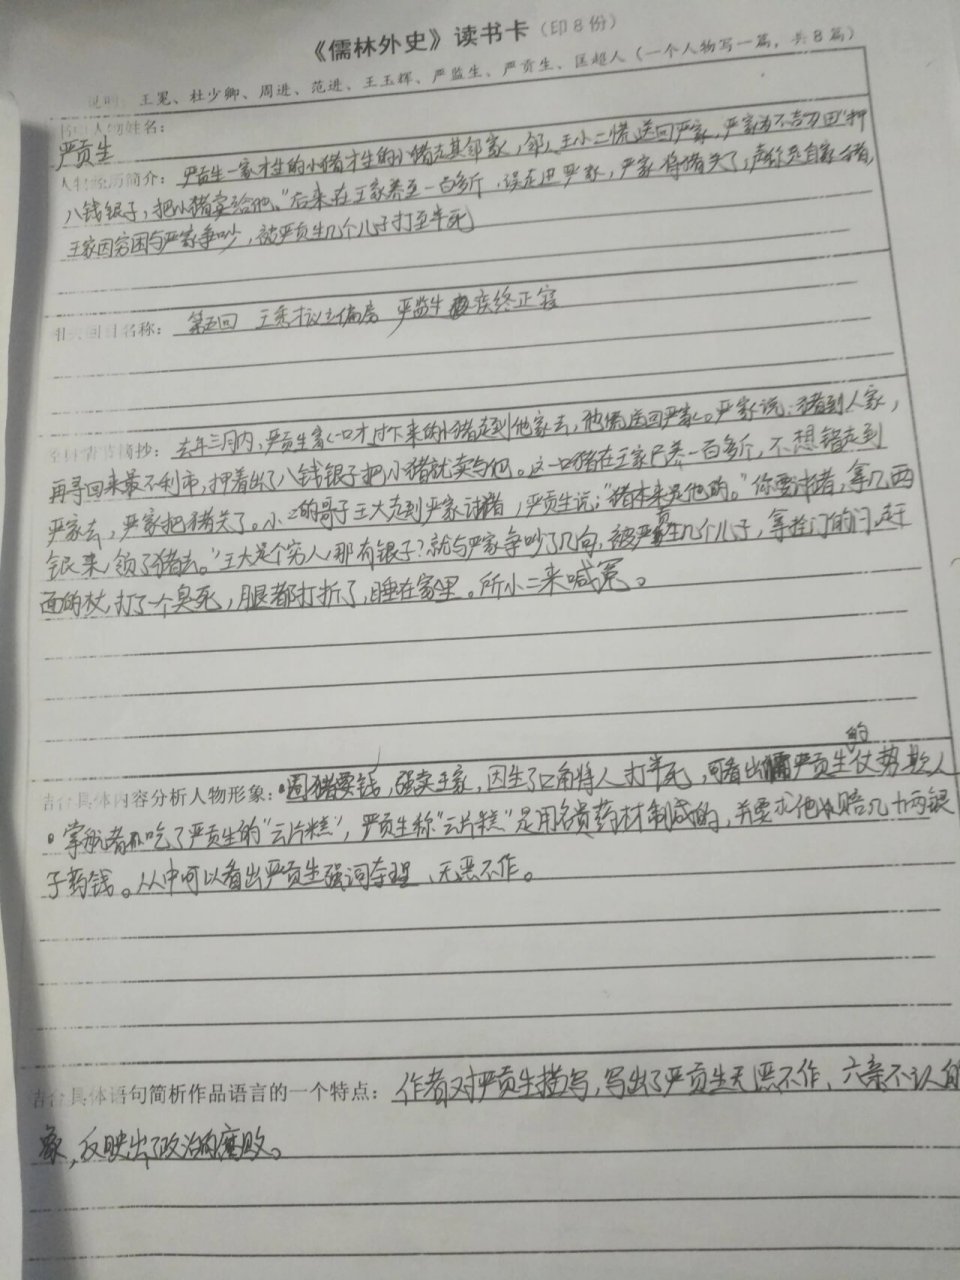 《儒林外史》读书卡（印8份）
说明：王冕、杜少卿、周进、范进、王玉辉、严监生、严贡生、匡超人（一个人物写一篇，共8篇）
人物姓名：
严贡生
人物经历简介：严贡生一家才生的小猪才生的小猪走其邻家，邻人王小二慌送回严家，严家为不吉为由"押
八钱银子，把小猪卖给他。"后来在王家养至一百多斤，误走进严家，严家将猪关了，声称是自家猪，
王家因穷困与严家争吵，被严贡生几个儿子打至半死
相关回目名称：第五回 王秀才议立偏房 严监生疾终正寝
情节摘抄：去年三月内，严贡生家一口才过下来的小猪走到他家去，他慌送回严家。严家说：猪到人家，
再寻回来最不利市，押着出了八钱银子把小猪就卖与他。这一口猪在王家已养一百多斤，不想错走到
严家去，严家把猪关了。小二的哥子王大走到严家讨猪，严贡生说："猪本来是他的。"你要讨猪，拿几两
银来，领了猪去。"王大是个穷人，那有银子？就与严家争吵了几句，被严贡生几个儿子，拿拴门的闩，赶
面的杖，打了一个臭死，腿都打折了，睡在家里。所小二来喊冤。
结合具体内容分析人物形象：圈猪要钱，强卖王家，因生了口角将人打半死，可看出严贡生的仗势欺人
掌舵者吃了严贡生的"云片糕"，严贡生称"云片糕"是用名贵药材制成的，并要求他赔几十两银
子药钱。从中可以看出严贡生强词夺理、无恶不作。
结合具体语句简析作品语言的一个特点：作者对严贡生描写，写出了严贡生无恶不作、六亲不认的
象，反映出了政治的腐败。